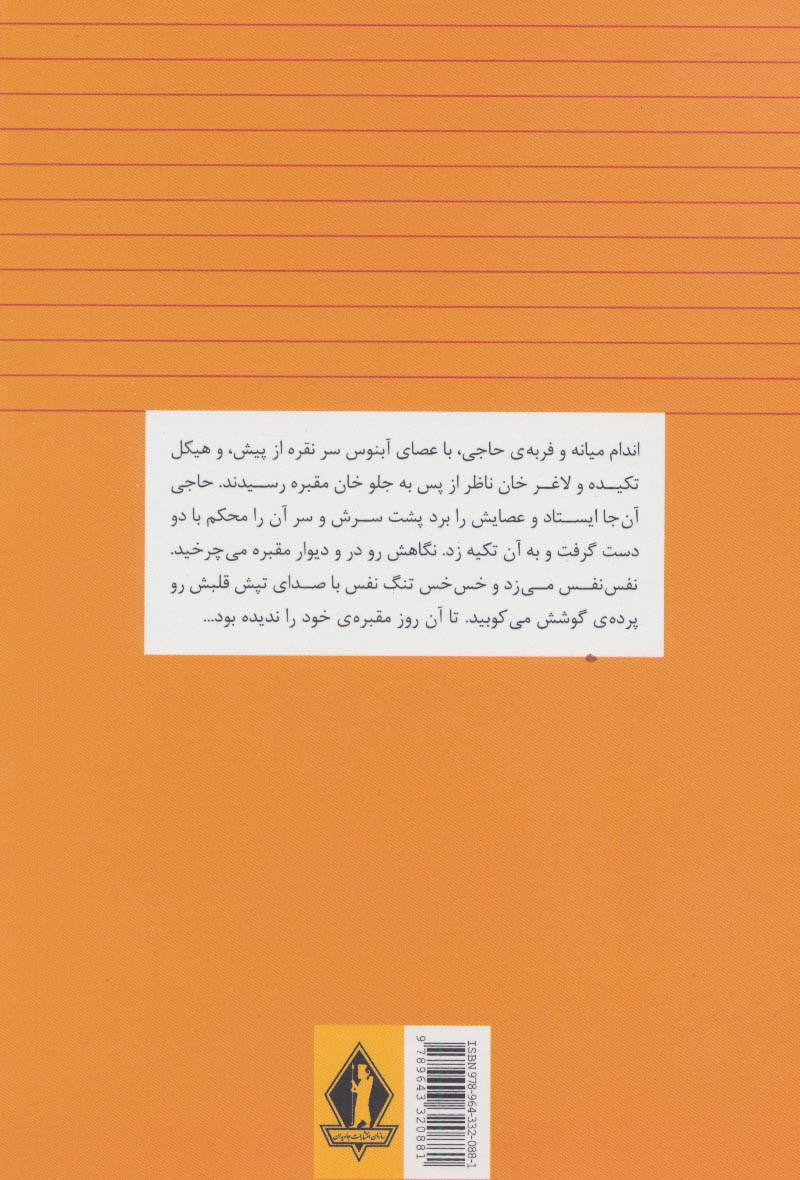 اندام میانه و فربه‌ی حاجی، با عصای آبنوس سر نقره از پیش، و هیکل
تکیده و لاغر خان ناظر از پس به جلو خان مقبره رسیدند. حاجی
آن‌جا ایستاد و عصایش را برد پشت سرش و سر آن را محکم با دو
دست گرفت و به آن تکیه زد. نگاهش رو در و دیوار مقبره می‌چرخید.
نفس‌نفس می‌زد و خس‌خس تنگ نفس با صدای تپش قلبش رو
پرده‌ی گوشش می‌کوبید. تا آن روز مقبره‌ی خود را ندیده بود...
سازمان انتشارات جاویدان
ISBN 978-964-332-088-1
9 789643 320881